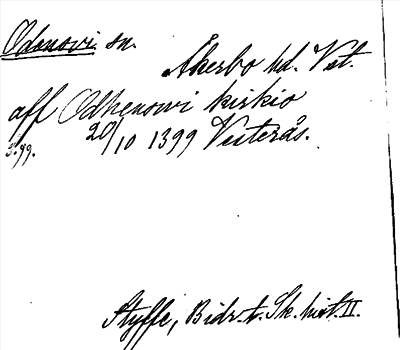 Odensvi. sn.
Åkerbo hd. Vst.
aff Odhenswi kirkio
s. 99. 20/10 1399 Vesterås.
Styffe, Bidr. t. Sk. hist. II.